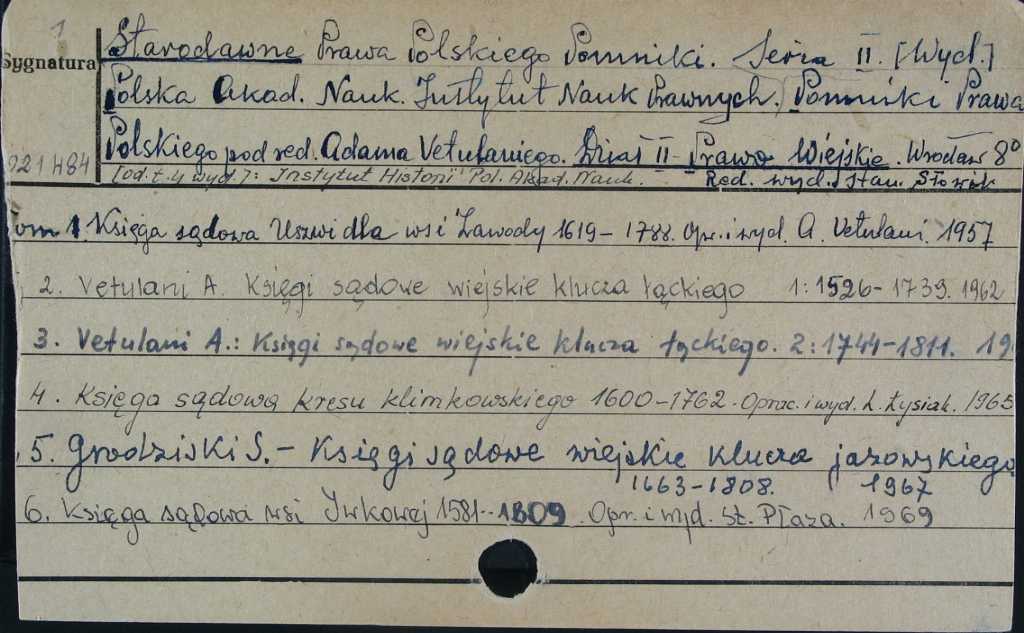 1
Starodawne Prawa Polskiego Pomniki. Seria II. [Wyd.]
Sygnatura
Polska Akad. Nauk. Instytut Nauk Prawnych. Pomniki Prawa
Polskiego pod red. Adama Vetulaniego. Dział II - Prawo Wiejskie. Wrocław 8°
221484
[od. t. 4 wyd.]: Instytut Historii Pol. Akad. Nauk. Red. wyd. Stan.
om 1. Księga sądowa Uszwi dla wsi Zawody 1619 - 1788. Opr. i wyd. A. Vetulani. 1957
2. Vetulani A. Księgi sądowe wiejskie klucza łąckiego 1: 1526 - 1739. 1962
3. Vetulani A.: Księgi sądowe wiejskie klucza łąckiego. 2: 1744-1811. 19
4. Księga sądowa kresu klimkowskiego 1600-1762. Oprac. i wyd. L. Łysiak. 1965
5. Grodziski S. - Księgi sądowe wiejskie klucza jazowskiego
1663-1808. 1967
6. Księga sądowa wsi Iwkowej 1581-1809. Opr. i wyd. St. Płaza. 1969